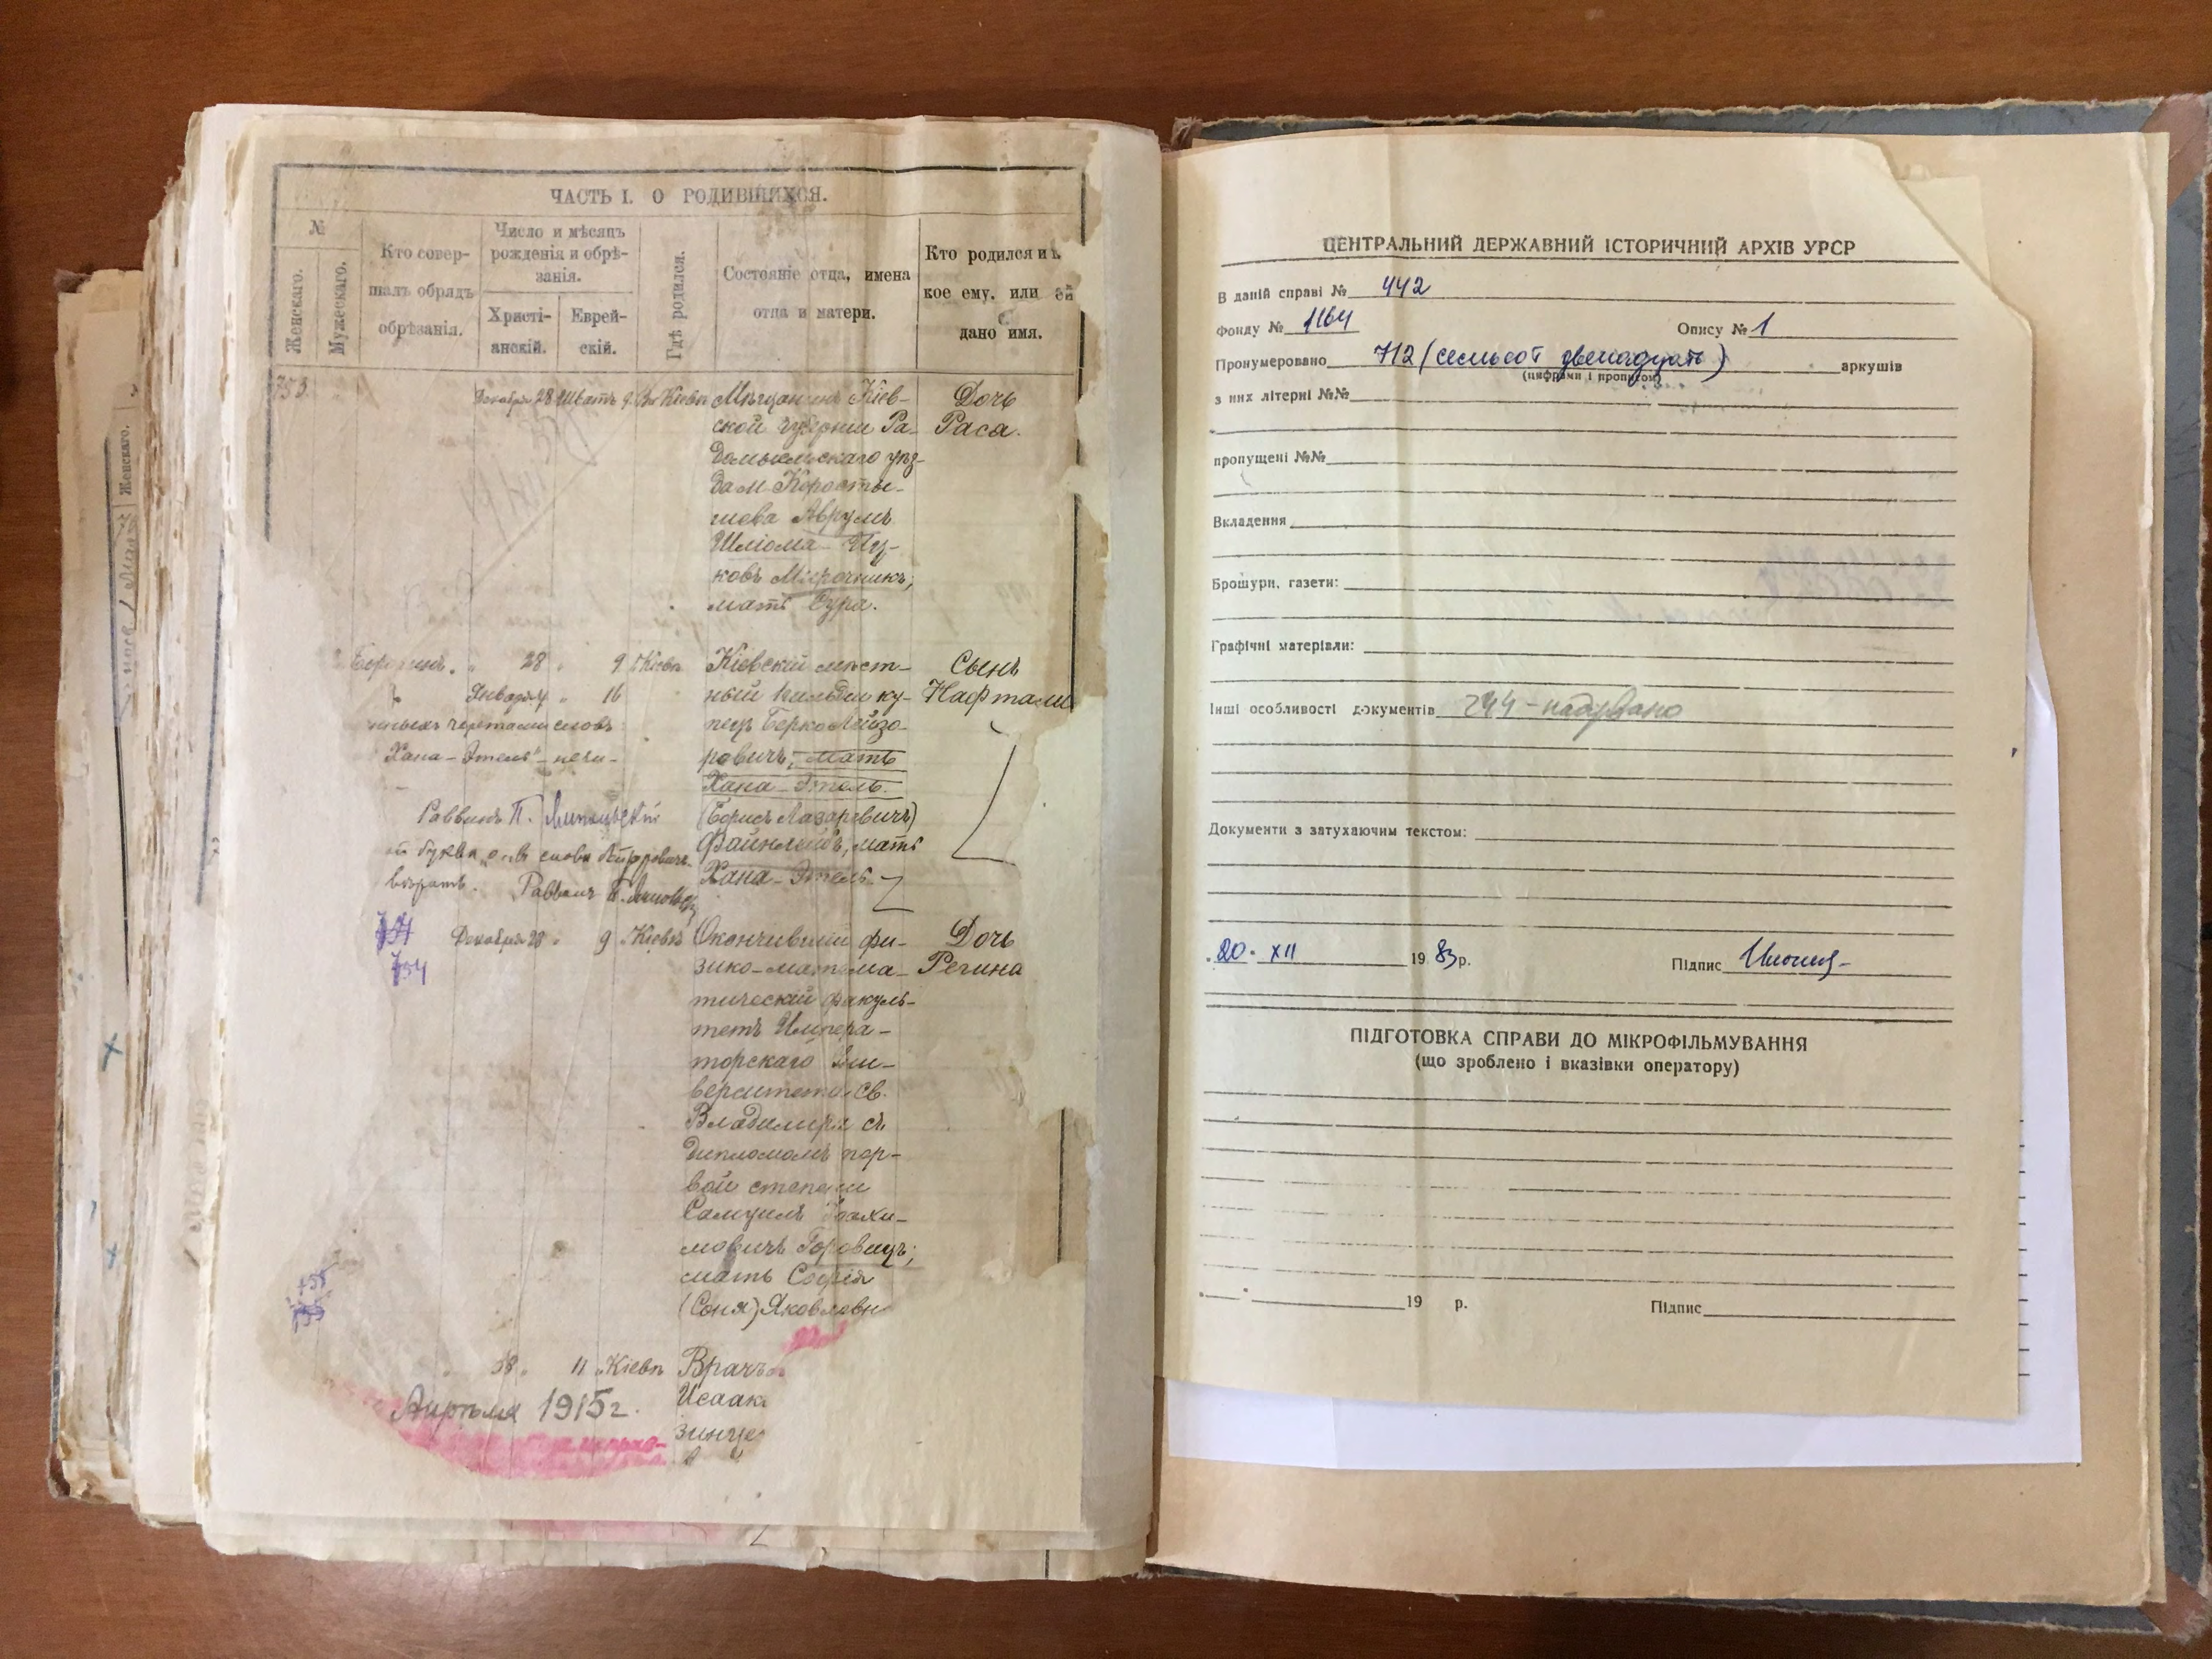 ЧАСТЬ I. О РОДИВШИХСЯ.
№
Женскаго.
Мужескаго.
Кто совер-
шалъ обрядъ
обрѣзанія.
Число и мѣсяцъ
рожденія и обрѣ-
занія.
Христі-
анскій.
Еврей-
скій.
Гдѣ родился.
Состояніе отца, имена
отца и матери.
Кто родился и
кое ему. или ей
дано имя.
753.
Декабря 28 Шватъ 9 Въ Кіевѣ
Мѣщанинъ Кіев-
ской губерніи Ра-
домысльскаго уѣз-
да м. Коросты-
шева Аврумъ
Шліома-Иц-
ковъ Мирочникъ;
мать Сура.
Дочь
Раса.
28 " 9 Кіевѣ
Января " 16
Кіевскій мѣст-
ный гильдіи ку-
пецъ Берко Лейзо-
ровичъ, мать
Хана-Этель.
(Борисъ Лазаревичъ)
Файнлейбъ, мать
Хана-Этель.
Сынъ
Нафтали
чертами словъ
Хана-Этель"
Раввинъ П.
буква "о" въ словѣ
вѣрить. Раввинъ П.
754
754
Декабря 28 " 9 " Кіевѣ
Окончившій фи-
зико-матема-
тическій факуль-
тетъ Импера-
торскаго Уни-
верситета св.
Владимира съ
дипломомъ пер-
вой степени
Самуилъ
мовичъ Горовицъ;
мать Софія
(Соня) Яковлевн
Дочь
Регина
755
28 " 11 " Кіевѣ
Врачъ
Исаак
зинце
Апрѣля 1915 г.
Женскаго.
ЦЕНТРАЛЬНИЙ ДЕРЖАВНИЙ ІСТОРИЧНИЙ АРХІВ УРСР
В даній справі № 442
Фонду № 1164 Опису № 1
Пронумеровано 712 (семьсот двенадцать) аркушів
(цифрами і прописом)
з них літерні №№
пропущені №№
Вкладення
Брошури, газети:
Графічні матеріали:
Інші особливості документів 244 - надірвано
Документи з затухаючим текстом:
"20" XII 1983 р. Підпис
ПІДГОТОВКА СПРАВИ ДО МІКРОФІЛЬМУВАННЯ
(що зроблено і вказівки оператору)
19 р. Підпис